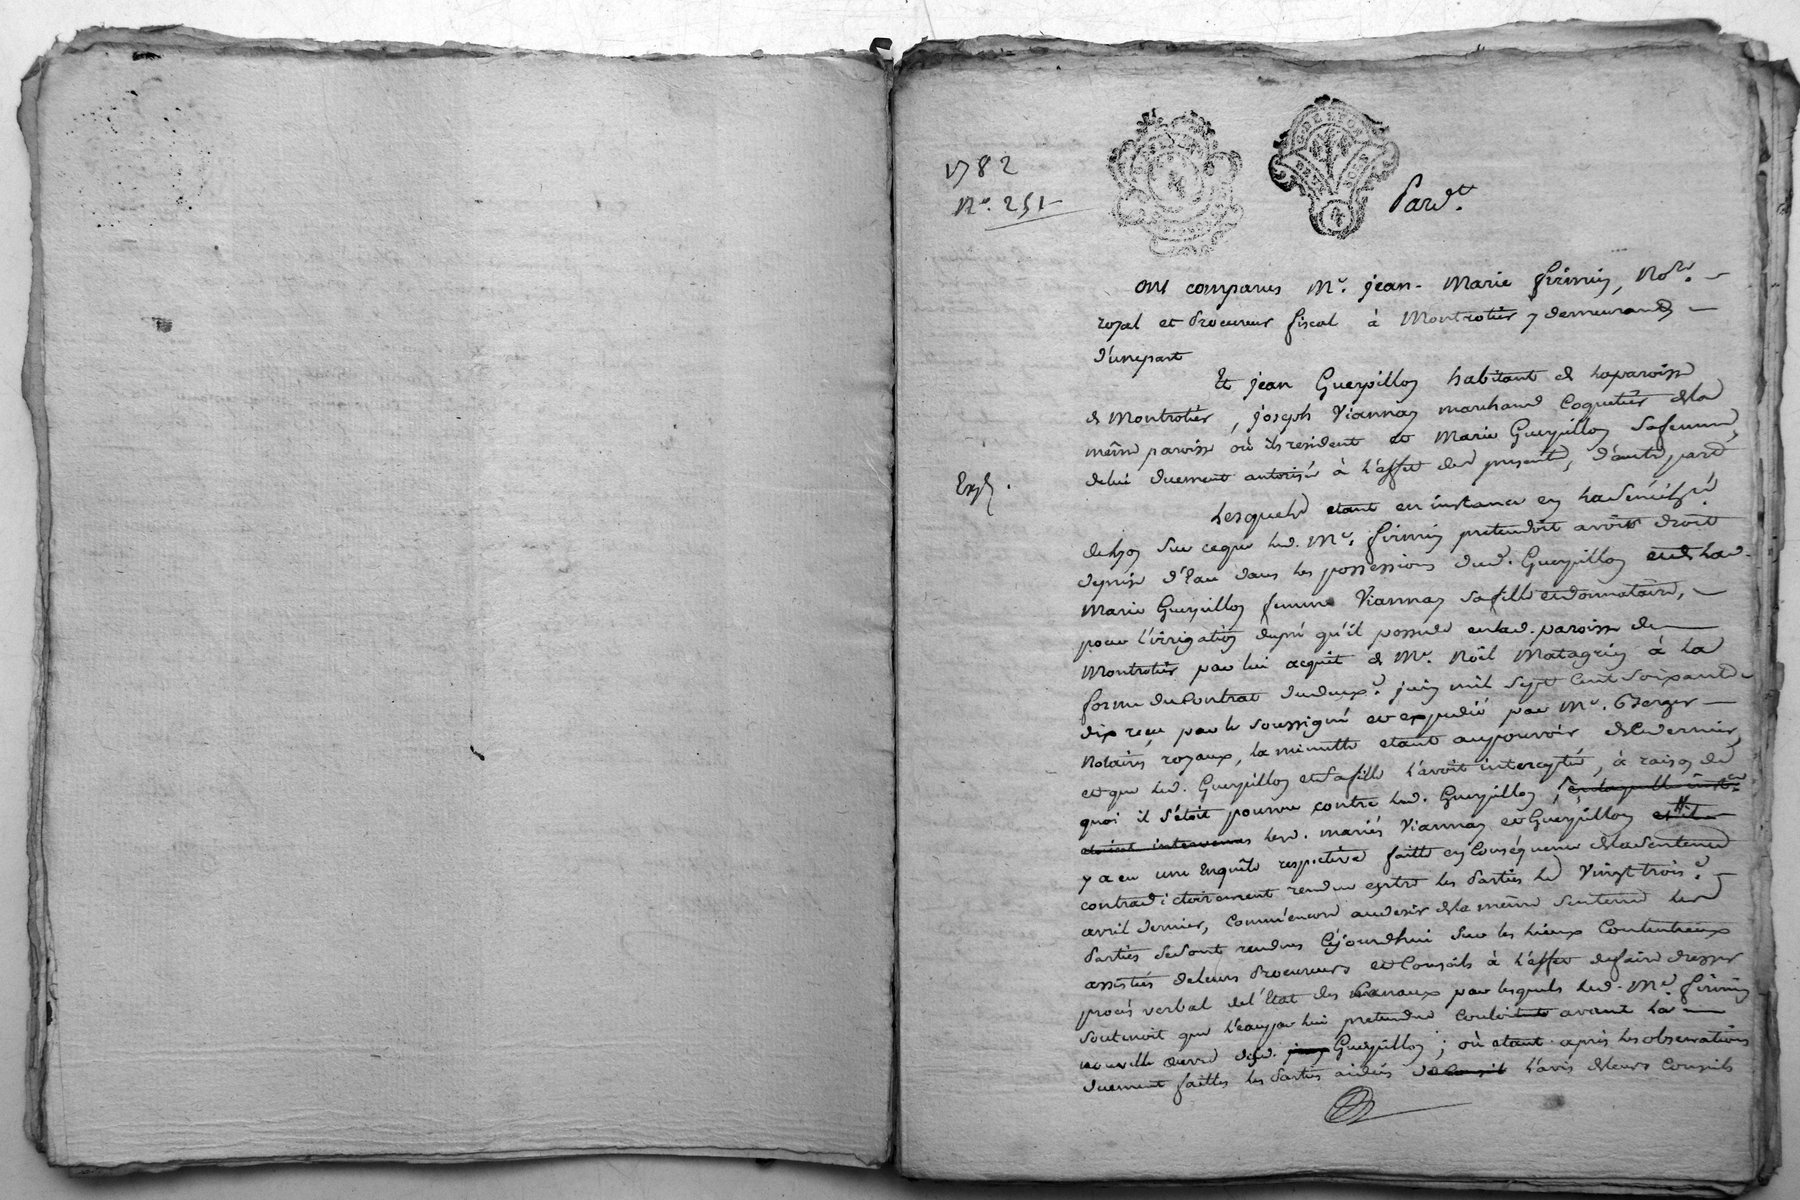 1782
N°. 251
Pard.t
Ont comparus Me. jean-Marie firmin, No.re
royal et Procureur fiscal à Montrotier y demeurand
d'unepart
Et jean Guerpillon habitant de laparoisse
de Montrotier, joseph Viannay marchand Coquetier dela
même paroisse où ils resident et Marie Guerpillon Safemme,
delui duement autorisée à l'effet des presentes, d'autre part
Exp.
Lesquels etant en instance en la Sénéch.é
de Lyon Sur ceque led. Me. firmin pretendoit avoir droit
deprise d'Eau dans les possessions dud. Guerpillon et de lad.
Marie Guerpillon femme Viannay Safille et donnataire,
pour l'irrigation dupré qu'il possede en lad. paroisse de
Montrotier par lui acquit de Me. Noël Matagrin à la
forme du Contrat dudeux.e juin mil Sept Cent Soixante
dix reçu par le Soussigné et expedié par Me. Berger
Notaires royaux, la minutte etant aupouvoir de ce dernier,
et que led. Guerpillon et Safille l'avoit interceptée, à raison de
quoi il s'étoit pourvu contre led. Guerpillon, en laquelle inst.ce
etoient intervenus lesd. mariés Viannay et Guerpillon et il
y a eu une Enquête respective faitte en Conséquence dela Sentence
contradictoirement rendue entre les Parties le Vingt trois.e
avril dernier, Comm'encore audesir dela même Sentence les
Parties Sesont rendues Cejourdhui Sur les Lieux Contentieux
assistées deleurs Procureurs et Conseils à l'effet defaire dresser
procès verbal del'Etat des Canaux par lesquels led. Me. firmin
Soutenoit que l'eau par lui pretendue couloit avant la
nouvelle œuvre dud. Guerpillon; où etant après les observations
duement faittes les Parties aidées de l'avis deleurs Conseils